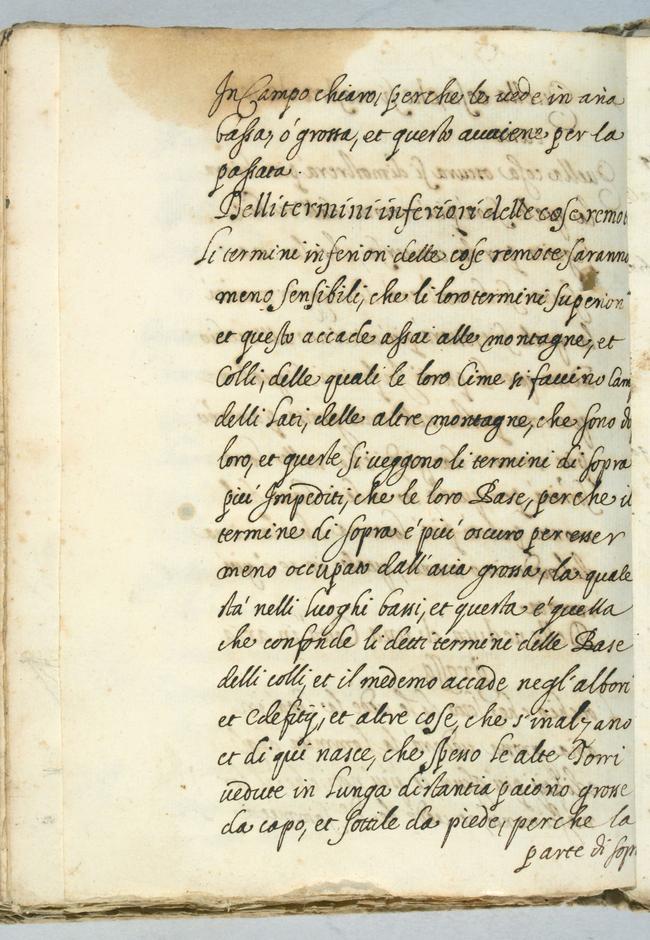 In Campo chiaro, perche le uede in aria
bassa, ó grossa, et questo auuiene per la
passata.
Delli termini inferiori delle cose remot
Li termini inferiori delle cose remote saranno
meno sensibili, che li loro termini superiori
et questo accade assai alle montagne, et
Colli, delle quali le loro Cime si faccino Cam
delli Lati, delle altre montagne, che sono
loro, et queste si ueggono li termini di sopra
piú Impediti, che le loro Base, perche il
termine di sopra é piú oscuro per esser
meno occupato dall'aria grossa, la quale
stá nelli luoghi bassi, et questa é quella
che confonde li detti termini delle Base
delli colli, et il medemo accade negl'albori
et Edefitij, et altre cose, che s'inalzano
et di qui nasce, che spesso le alte Torri
uedute in Lunga distantia paiono grosse
da capo, et sottile da piede, perche la
parte di sopr